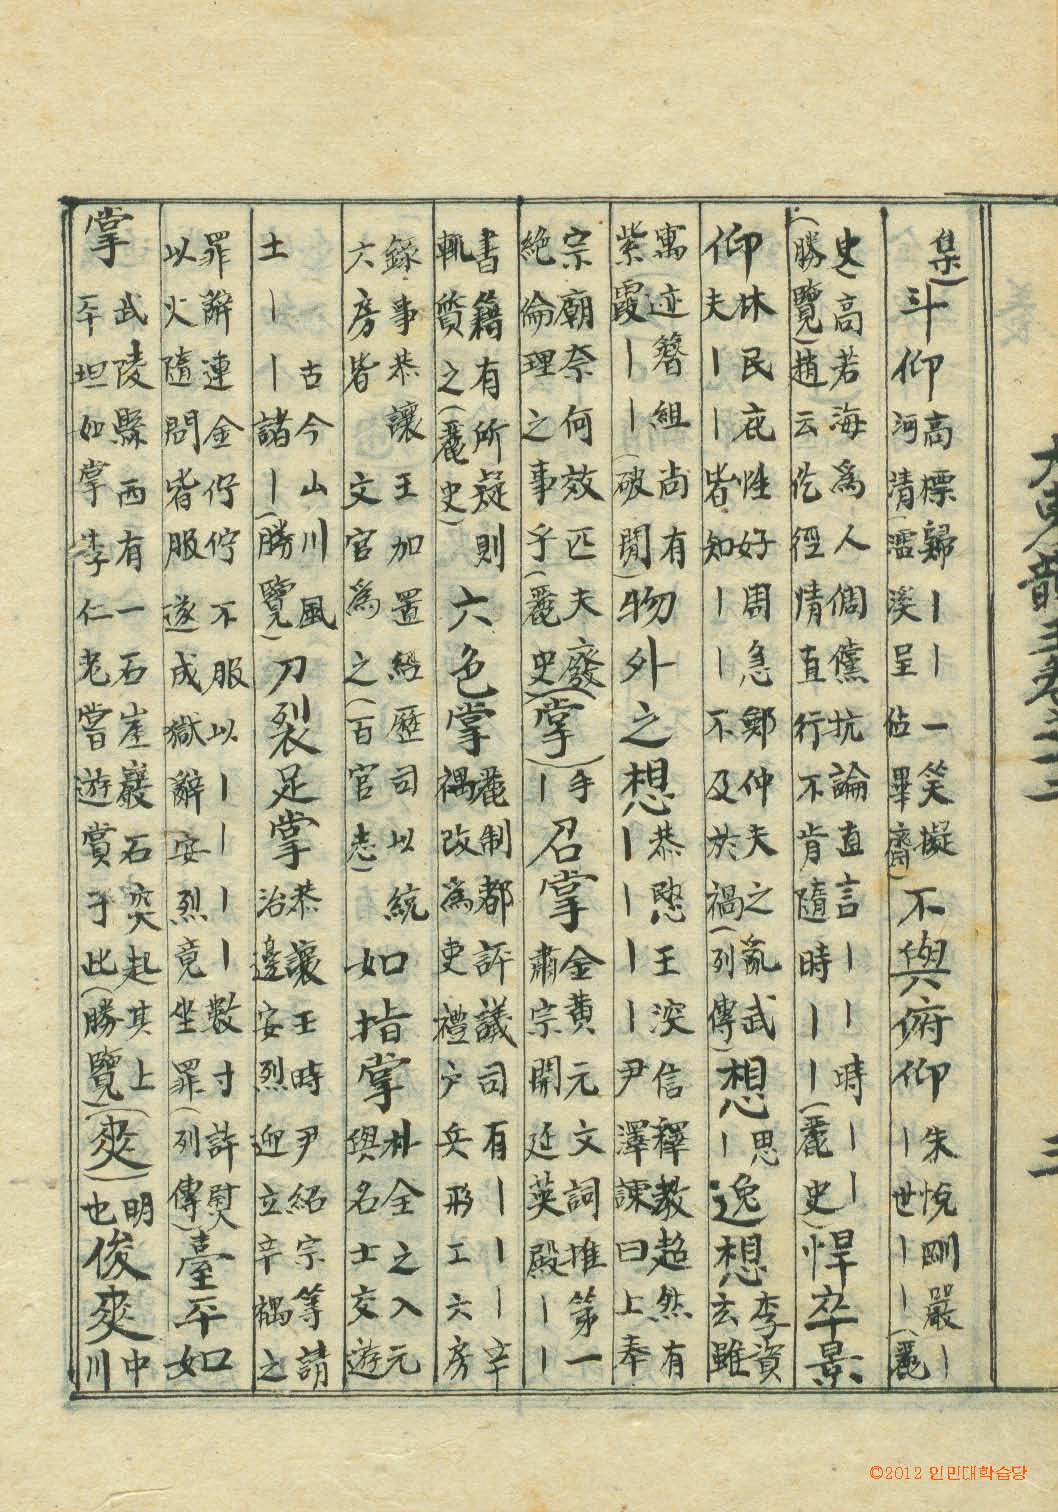 集)斗仰高標歸丨丨一笑擬河清(濡溪呈佔畢齋)不與俯仰朱悅剛嚴丨丨世丨丨(麗
史)高若海爲人倜儻抗論直言丨丨時丨丨(勝覽)趙云仡徑情直行不肯隨時丨丨(麗史)悍卒景
仰林民庇性好周急鄭仲夫之亂武夫丨丨皆知丨丨不及於禍(列傳)想思丨逸想李資玄雖
寓迹簪組尚有紫霞丨丨(破閒)物外之想恭愍王深信釋敎超然有丨丨丨丨尹澤諫曰上奉
宗廟奈何效匹夫廢絶倫理之事乎(麗史)(掌)手丨召掌金黄元文詞推第一肅宗開延英殿丨丨
書籍有所疑則輒質之(麗史)六色掌麗制都評議司有丨丨丨辛禑改爲吏禮户兵刑工六房
錄事恭讓王加置經歷司以統六房皆文官爲之(百官志)如指掌朴全之入元與名士交遊
古今山川風土丨丨諸丨(勝覽)刀裂足掌恭讓王時尹紹宗等請治邊安烈迎立辛禑之
罪辭連金佇佇不服以丨丨丨丨數寸許熨以火隨問皆服遂成獄辭安烈竟坐罪(列傳)臺平如
掌武陵縣西有一石崖巖石突起其上平坦如掌李仁老嘗遊賞于此(勝覽)(爽)明也俊爽中川
©2012 인민대학습당